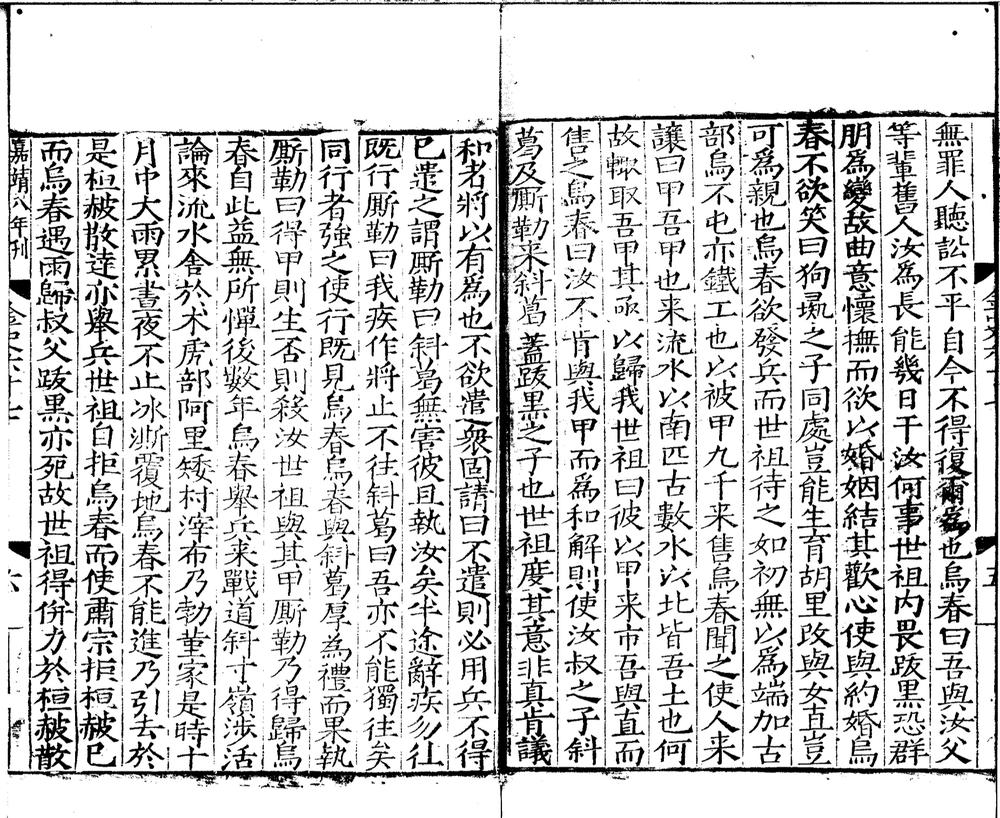 無罪人聽訟不平自今不得復爾為也烏春曰吾與汝父
等輩舊人汝為長能幾日干汝何事世祖內畏跋黑恐群
朋為變故曲意懷撫而欲以婚姻結其歡心使與約婚烏
春不欲笑曰狗彘之子同處豈能生育胡里改與女直豈
可為親也烏春欲發兵而世祖待之如初無以為端加古
部烏不屯亦鐵工也以被甲九千来售烏春聞之使人来
讓曰甲吾甲也来流水以南匹古數水以北皆吾土也何
故輙取吾甲其亟以歸我世祖曰彼以甲来市吾與直而
售之烏春曰汝不肯與我甲而為和解則使汝叔之子斜
葛及厮勒来斜葛蓋跋黑之子也世祖度其意非真肯議
和者將以有為也不欲遣衆固請曰不遣則必用兵不得
已遣之謂厮勒曰斜葛無害彼且執汝矣半途辭疾勿往
既行厮勒曰我疾作將止不往斜葛曰吾亦不能獨往矣
同行者強之使行既見烏春烏春與斜葛厚為禮而果執
厮勒曰得甲則生否則殺汝世祖與其甲厮勒乃得歸烏
春自此益無所憚後數年烏春舉兵来戰道斜寸嶺涉活
論來流水舍於朮虎部阿里矮村滓布乃勃菫家是時十
月中大雨累晝夜不止冰澌覆地烏春不能進乃引去於
是桓赧散達亦舉兵世祖自拒烏春而使肅宗拒桓赧已
而烏春遇雨歸叔父跋黑亦死故世祖得併力於桓赧散
嘉靖八年刊